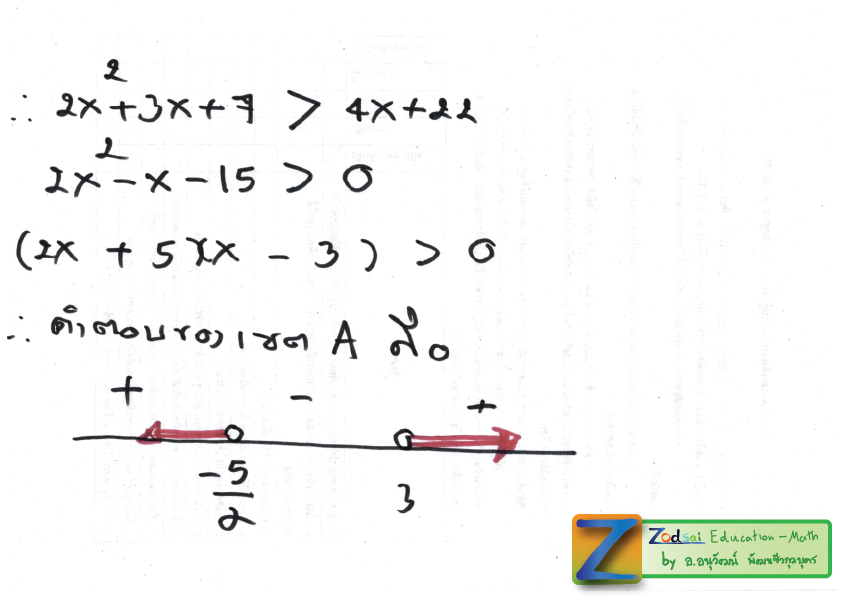 ∴ 2x²+3x+7 > 4x+22
2x²-x-15 > 0
(2x + 5)(x - 3) > 0
∴ คำตอบของเซต A คือ
+ - +
-5/2 3
Zodsai Education-Math
by อ.อนุวัฒน์ พัฒนชัวกุลบุตร